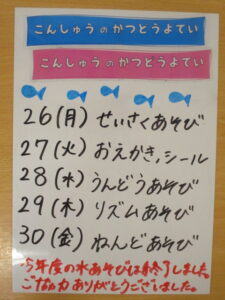 こんしゅうのかつどうよてい
こんしゅうのかつどうよてい
26(月)せいさくあそび
27(火)おえかき,シール
28(水)うんどうあそび
29(木)リズムあそび
30(金)ねんどあそび
今年度の水あそびは終了しました。
ご協力ありがとうございました。